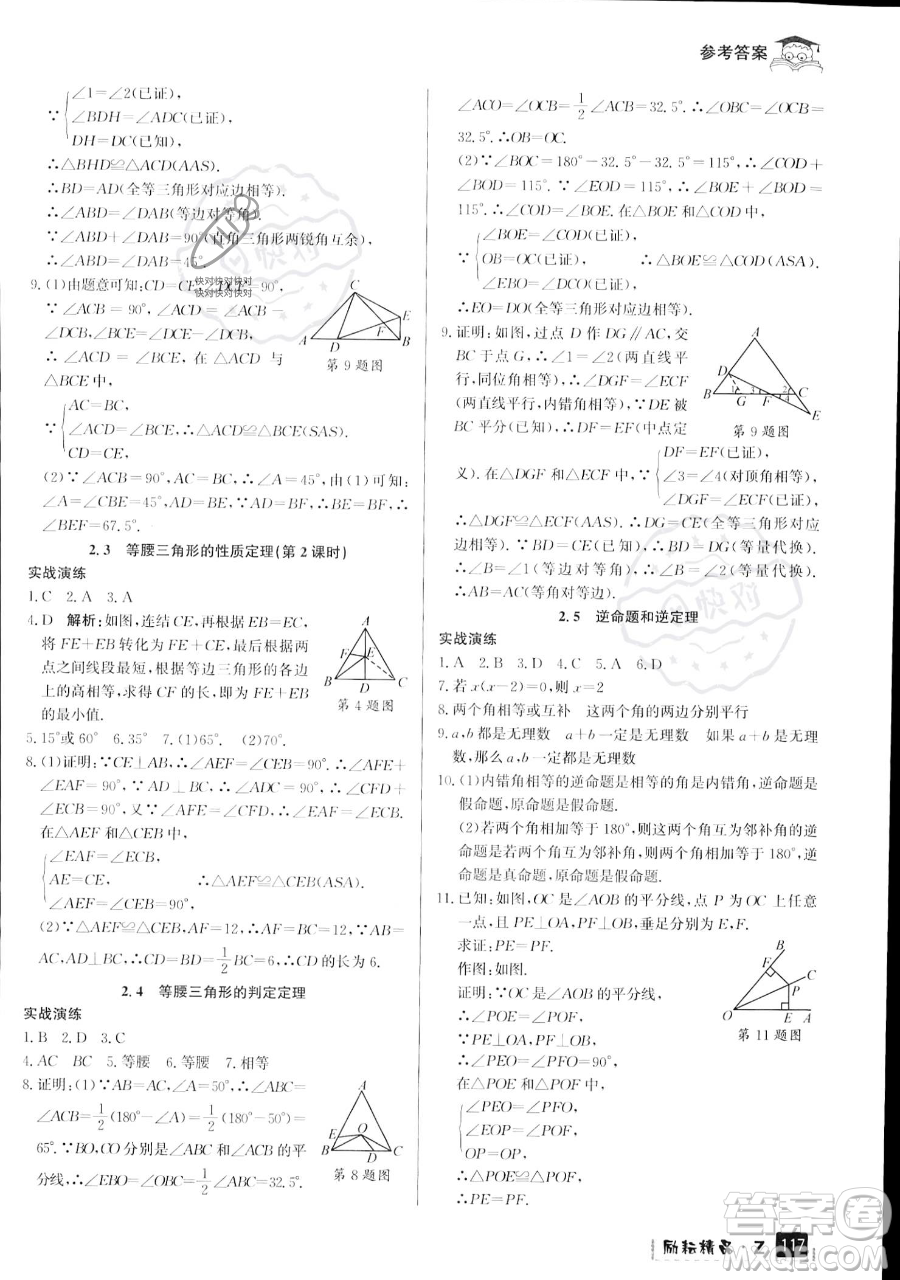 参考答案
∠1=∠2(已证),
∵ ∠BDH=∠ADC(已证),
DH=DC(已知),
∴△BHD≌△ACD(AAS).
∴BD=AD(全等三角形对应边相等).
∴∠ABD=∠DAB(等边对等角).
∵∠ABD+∠DAB=90°(直角三角形两锐角互余),
∴∠ABD=45°.
9.(1)由题意可知:CD=CE,∠DCE=90°.
∵∠ACB=90°,
∴∠ACD=∠ACB-∠DCB,
∠BCE=∠DCE-∠DCB.
∴∠ACD=∠BCE. 在△ACD 与
△BCE中,
AC=BC,
∵ ∠ACD=∠BCE,
CD=CE,
∴△ACD≌△BCE(SAS).
第 9 题图
(2)∵∠ACB=90°,AC=BC,∴由(1)可知:
∠A=∠CBE=45°,∵AD=BF,∴BE=BF,∴
∠BEF=67.5°.
2.3 等腰三角形的性质定理(第 2 课时)
实战演练
1.C 2.A 3.A
4.D 解析:如图,连结EB,再根据EB=EC,
将 FE+EB 转化为 FE+CE,由两
点之间线段最短,根据等边三角形的高
上的高相等,求得 CF 的长,即为 FE+EB
的最小值.
第 4 题图
5.15°或60° 6.35° 7.(1)65°. (2)70°.
8.(1)证明:∵CE⊥AB,∴∠AEF=∠CEB=90°,∴∠AFE+
∠EAF=90°. ∵AD⊥BC,∴∠CFD+∠ECB=90°,
又∵∠AFE=∠CFD,∴∠EAF=∠ECB.
在△AEF和△CEB中,
∠EAF=∠ECB,
AE=CE, ∴△AEF≌△CEB(ASA).
∠AEF=∠CEB,
(2)∵△AEF≌△CEB,AF=12,∴AF=BC=12,∵AB=
AC,AD⊥BC,∴CD=BD=1/2BC=6,∴CD的长为6.
2.4 等腰三角形的判定定理
实战演练
1.B 2.D 3.C
4.AC BC 5.等腰 6.等腰 7.相等
8.证明:(1)∵AB=AC,∠A=50°,∴∠ABC=
∠ACB=1/2(180°-∠A)=1/2(180°-50°)=
65°.∵BO,CO分别是∠ABC和∠ACB的平
分线,∴∠EBO=∠OBC=1/2∠ABC=32.5°.
第 8 题图
∠ACO=∠OCB=1/2∠ACB=32.5°.∴∠OBC=∠OCB=
32.5°.∴OB=OC.
(2)∵∠BOC=180°-32.5°-32.5°=115°,∴∠COD+
∠BOD=115°. ∵∠EOD=115°,∴∠BOE+∠BOD=
115°,∴∠COD=∠BOE. 在△BOE和△COD中,
∠BOE=∠COD(已证),
∵ OB=OC(已证), ∴△BOE≌△COD(ASA).
∠OBE=∠OCD(已证),
∴EO=DO(全等三角形对应边相等).
9.证明:如图,过点 D 作 DG∥AC,交
BC于点G,∴∠1=∠2(两直线平
行,同位角相等),∴∠DGF=∠ECF
(两直线平行,内错角相等).∵DE 被
BC 平分(已知),∴DF=EF(中点定
第 9 题图
DF=EF(已证),
义).在△DGF和△ECF中, ∠3=∠4(对顶角相等),
∠DGF=∠ECF(已证)
∴△DGF≌△ECF(ASA).
∴CE=GD(全等三角形对应边相等).
∵BD=CE(已知),∴BD=GD(等量代换).
∴∠B=∠1(等边对等角).∴∠B=∠2(等量代换).
∴AB=AC(等角对等边).
2.5 逆命题和逆定理
实战演练
1.A 2.B 3.D 4.C 5.A 6.D
7.若x(x-2)=0,则x=2
8.两个角相等或互补 这两个角的两边分别平行
9.a,b都是无理数 a+b一定是无理数 如果a+b是无理
数,那么a,b都是无理数
10.(1)内错角相等的逆命题是相等的角是内错角,逆命题是
假命题,原命题是假命题.
(2)若两个角相加等于180°,则这两个角互为邻补角的逆
命题是若两个角互为邻补角,则这两个角相加等于180°,
逆命题是真命题,原命题是假命题.
11.已知:如图,OC是∠AOB的平分线,点 P 为OC上任意
一点,且PE⊥OA,PF⊥OB,垂足分别为E,F.
求证:PE=PF.
作图:如图.
证明:∵OC是∠AOB的平分线,
∴∠POE=∠POF,
∵PE⊥OA,PF⊥OB,
∴∠PEO=∠PFO=90°,
在△POE和△POF中,
∠PEO=∠PFO,
∠EOP=∠POF,
OP=OP,
∴△POE≌△POF(AAS),
∴PE=PF.
第 11 题图
励耘精品·Z 117